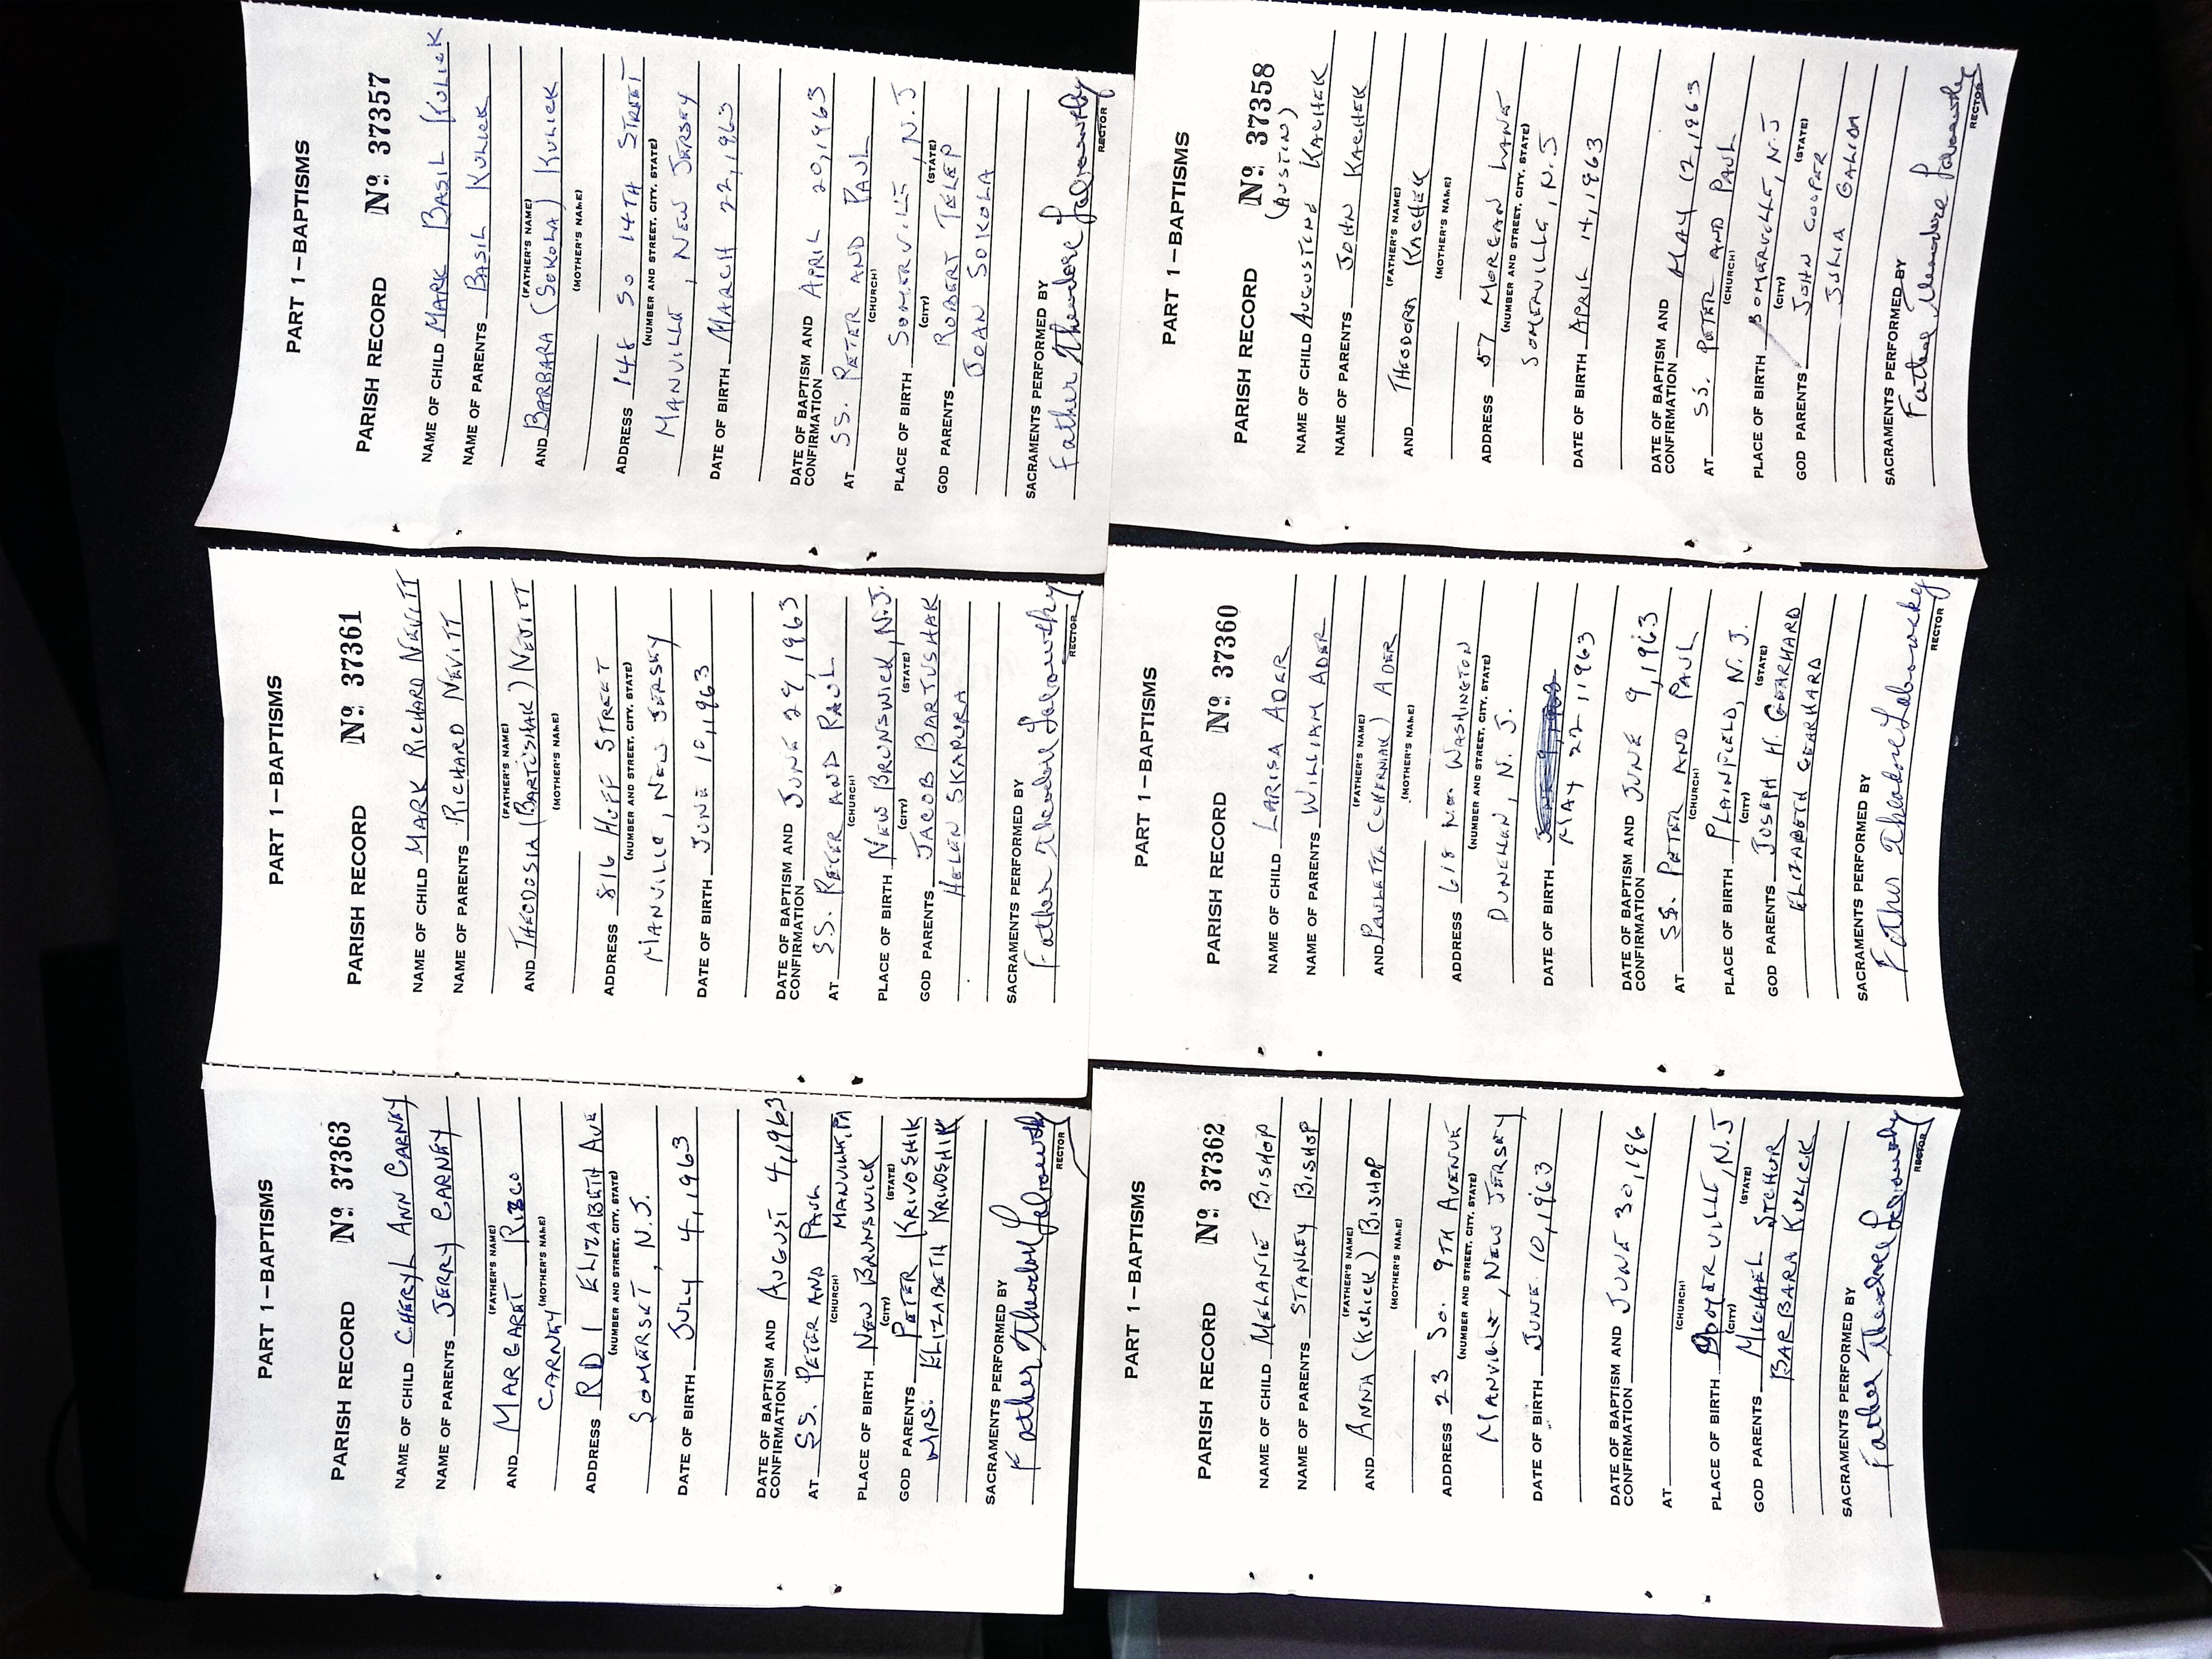 PART 1—BAPTISMS
PARISH RECORD Nº 37363
NAME OF CHILD CHERYL ANN CARNEY
NAME OF PARENTS JERRY CARNEY
(FATHER'S NAME)
AND MARGARET RIZCO
CARNEY (MOTHER'S NAME)
ADDRESS RD 1 ELIZABETH AVE
(NUMBER AND STREET, CITY, STATE)
SOMERSET, N.J.
DATE OF BIRTH JULY 4, 1963
DATE OF BAPTISM AND
CONFIRMATION AUGUST 4, 1963
AT SS. PETER AND PAUL
(CHURCH) MANVILLE, PA
PLACE OF BIRTH NEW BRUNSWICK
(CITY) (STATE)
GOD PARENTS PETER KRIVOSHIK
MRS. ELIZABETH KRIVOSHIK
SACRAMENTS PERFORMED BY
Father Theodore Labowsky
RECTOR
PART 1—BAPTISMS
PARISH RECORD Nº 37361
NAME OF CHILD MARK RICHARD NEVITT
NAME OF PARENTS RICHARD NEVITT
(FATHER'S NAME)
AND THEODOSIA (BARTUSHAK) NEVITT
(MOTHER'S NAME)
ADDRESS 816 HUFF STREET
(NUMBER AND STREET, CITY, STATE)
MANVILLE, NEW JERSEY
DATE OF BIRTH JUNE 10, 1963
DATE OF BAPTISM AND
CONFIRMATION JUNE 29, 1963
AT SS. PETER AND PAUL
(CHURCH)
PLACE OF BIRTH NEW BRUNSWICK, N.J.
(CITY) (STATE)
GOD PARENTS JACOB BARTUSHAK
HELEN SKAPURA
SACRAMENTS PERFORMED BY
Father Theodore Labowsky
RECTOR
PART 1—BAPTISMS
PARISH RECORD Nº 37357
NAME OF CHILD MARK BASIL KULICK
NAME OF PARENTS BASIL KULICK
(FATHER'S NAME)
AND BARBARA (SOKOLA) KULICK
(MOTHER'S NAME)
ADDRESS 148 SO 14TH STREET
(NUMBER AND STREET, CITY, STATE)
MANVILLE, NEW JERSEY
DATE OF BIRTH MARCH 22, 1963
DATE OF BAPTISM AND
CONFIRMATION APRIL 20, 1963
AT SS. PETER AND PAUL
(CHURCH)
PLACE OF BIRTH SOMERVILLE, N.J
(CITY) (STATE)
GOD PARENTS ROBERT TELEP
JOAN SOKOLA
SACRAMENTS PERFORMED BY
Father Theodore Labowsky
RECTOR
PART 1—BAPTISMS
PARISH RECORD Nº 37362
NAME OF CHILD MELANIE BISHOP
NAME OF PARENTS STANLEY BISHOP
(FATHER'S NAME)
AND ANNA (KULICK) BISHOP
(MOTHER'S NAME)
ADDRESS 23 SO. 9TH AVENUE
(NUMBER AND STREET, CITY, STATE)
MANVILLE, NEW JERSEY
DATE OF BIRTH JUNE 10, 1963
DATE OF BAPTISM AND
CONFIRMATION JUNE 30, 196
AT
(CHURCH)
PLACE OF BIRTH SOMERVILLE, N.J
(CITY) (STATE)
GOD PARENTS MICHAEL STCHUR
BARBARA KULICK
SACRAMENTS PERFORMED BY
Father Theodore Labowsky
RECTOR
PART 1—BAPTISMS
PARISH RECORD Nº 37360
NAME OF CHILD LARISA ADER
NAME OF PARENTS WILLIAM ADER
(FATHER'S NAME)
AND PAULETTE (CHERNIAK) ADER
(MOTHER'S NAME)
ADDRESS 618 NO. WASHINGTON
(NUMBER AND STREET, CITY, STATE)
DUNELLEN, N. J.
DATE OF BIRTH JUNE 9, 1963
MAY 22, 1963
DATE OF BAPTISM AND
CONFIRMATION JUNE 9, 1963
AT SS. PETER AND PAUL
(CHURCH)
PLACE OF BIRTH PLAINFIELD, N. J.
(CITY) (STATE)
GOD PARENTS JOSEPH H. GEARHARD
ELIZABETH GEARHARD
SACRAMENTS PERFORMED BY
Father Theodore Labowsky
RECTOR
PART 1—BAPTISMS
PARISH RECORD Nº 37358
(AUSTIN)
NAME OF CHILD AUGUSTINE KACHEK
NAME OF PARENTS JOHN KACHEK
(FATHER'S NAME)
AND THEODORA KACHEK
(MOTHER'S NAME)
ADDRESS 57 MORGAN LANE
(NUMBER AND STREET, CITY, STATE)
SOMERVILLE, N.J
DATE OF BIRTH APRIL 14, 1963
DATE OF BAPTISM AND
CONFIRMATION MAY 12, 1963
AT SS. PETER AND PAUL
(CHURCH)
PLACE OF BIRTH SOMERVILLE, N.J
(CITY) (STATE)
GOD PARENTS JOHN COOPER
JULIA GALIDA
SACRAMENTS PERFORMED BY
Father Theodore Labowsky
RECTOR